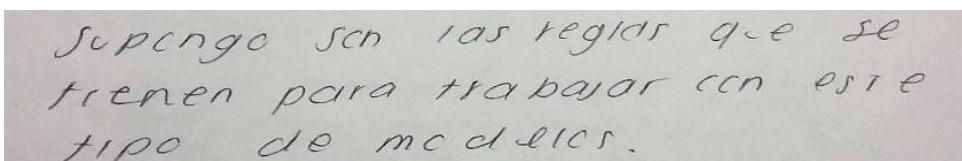 Supongo son las reglas que se
tienen para trabajar con este
tipo de modelos.